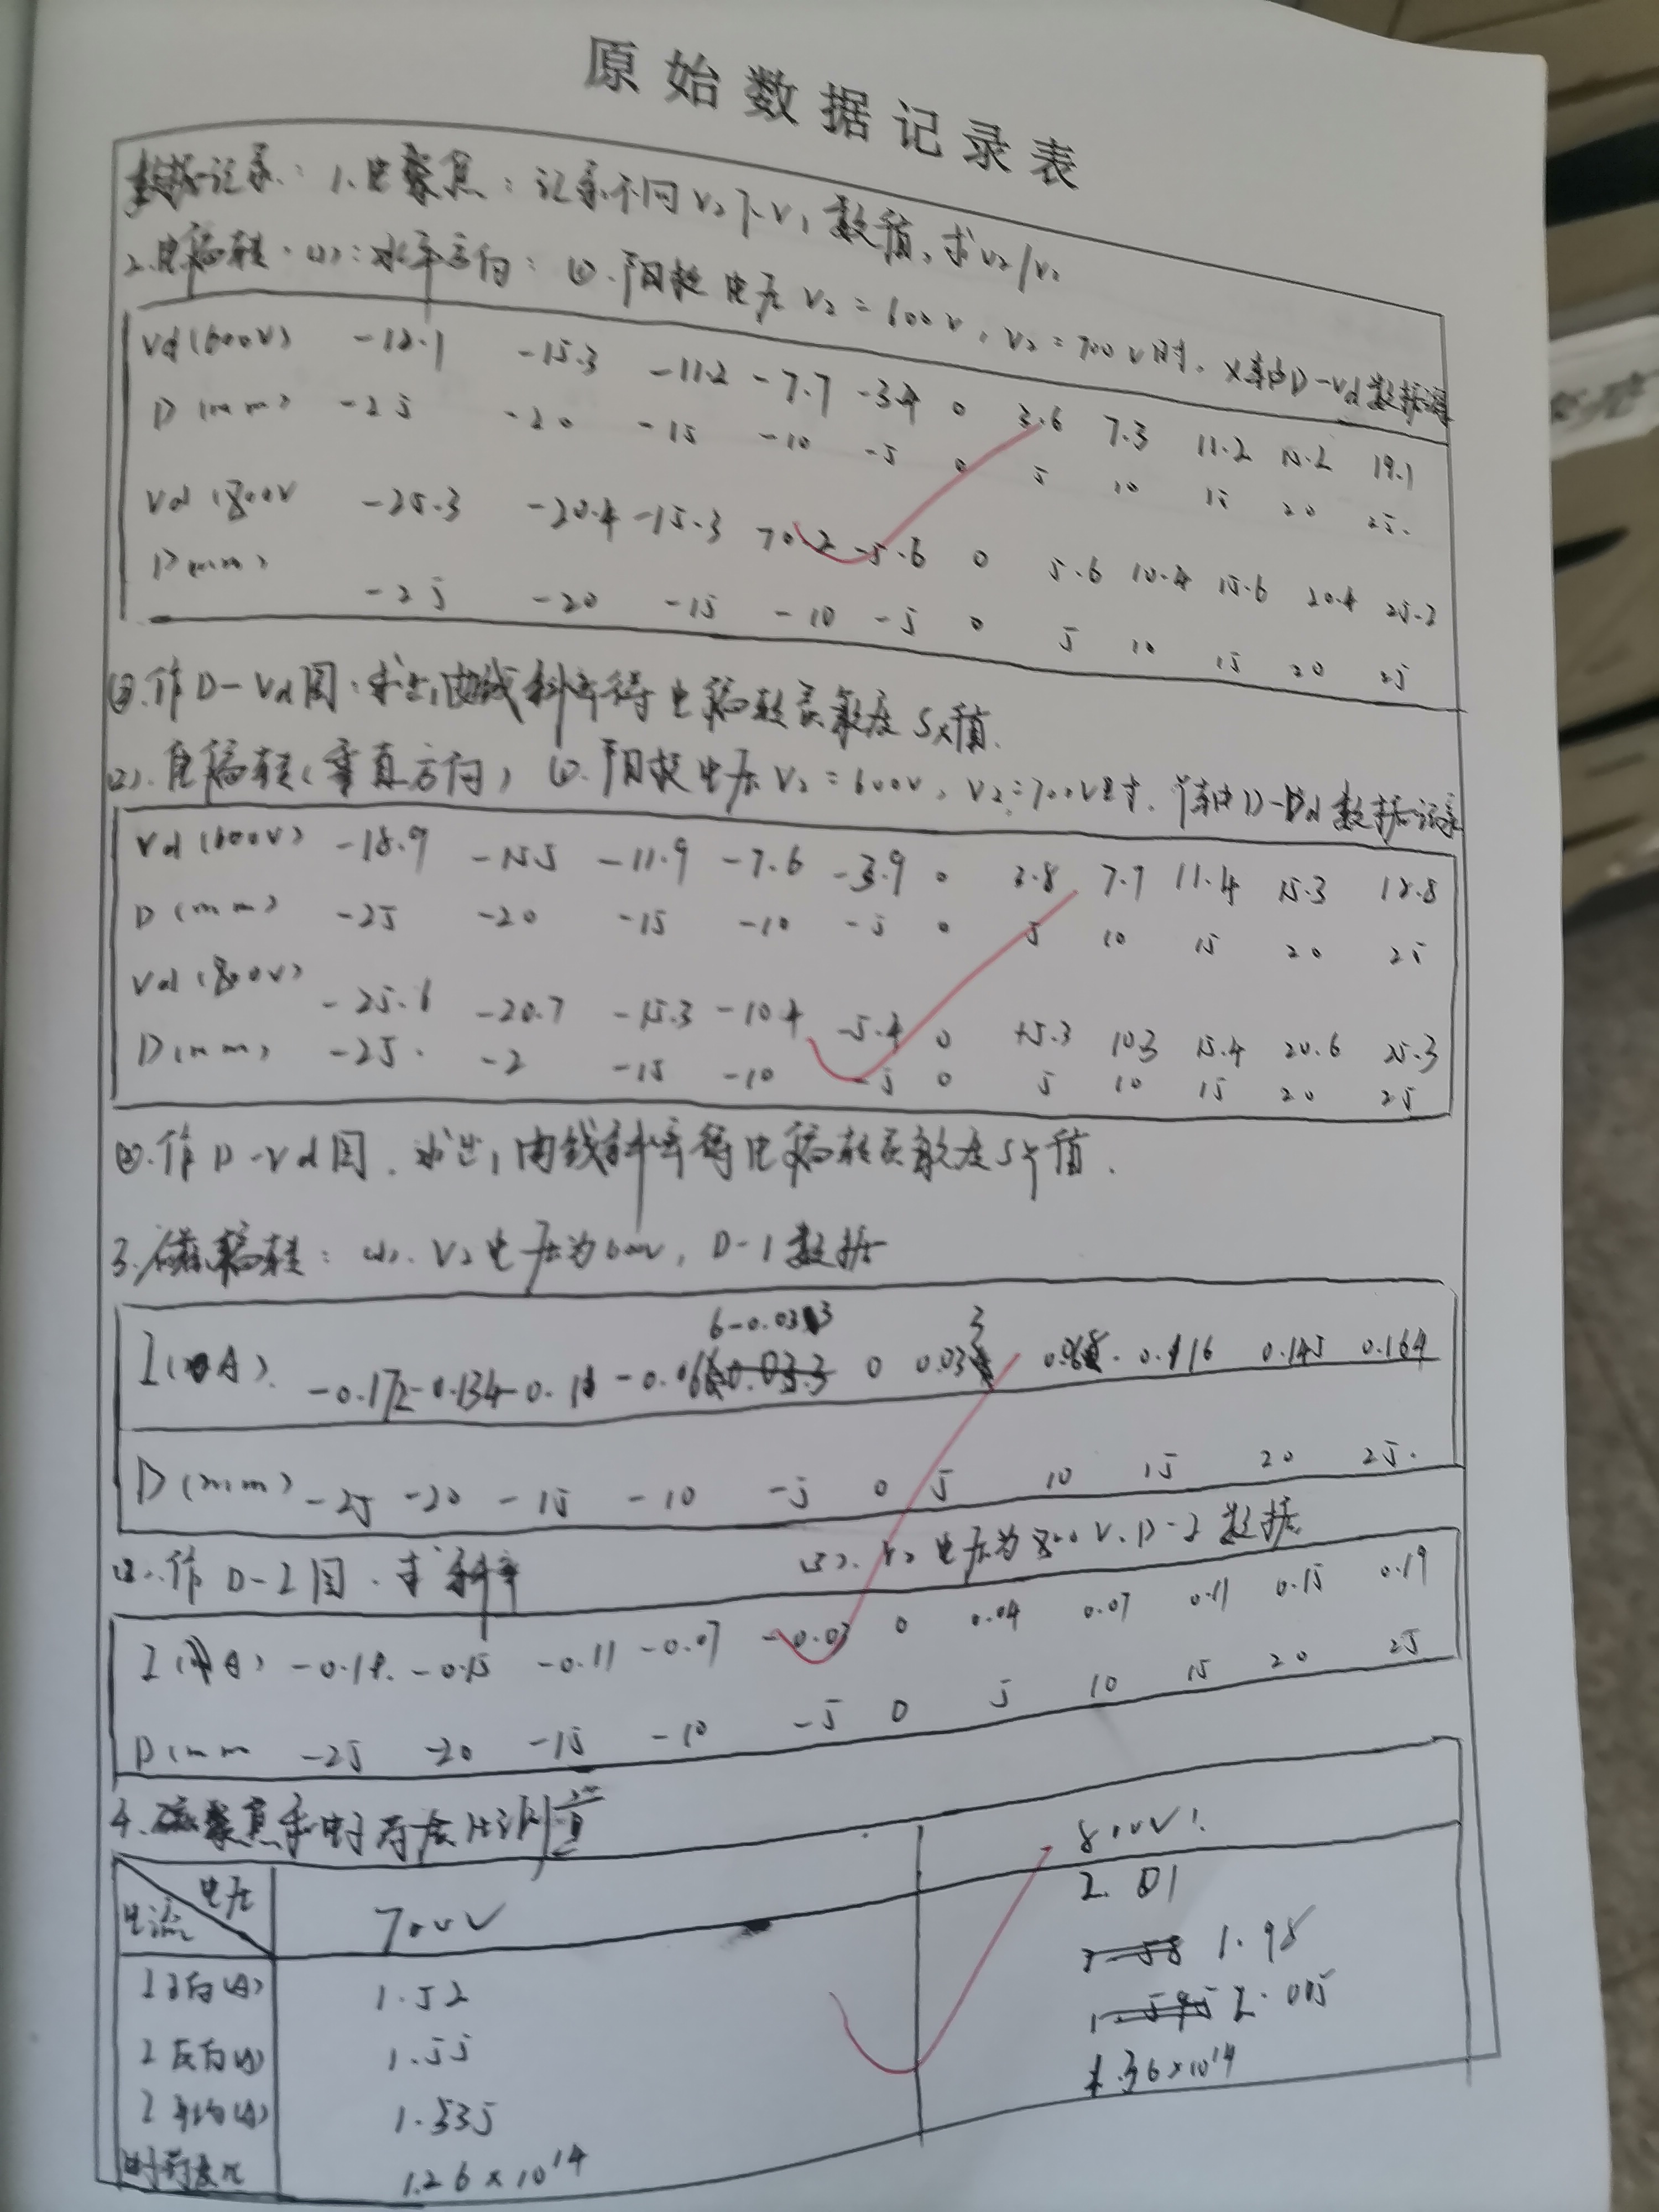 原始数据记录表
数据记录：1.电聚焦：记录不同V2下V1数值，求V2/V1
2.电偏转.(1)：水平方向：①.阳极电压V2=600V，V2=700V时，X轴D-Vd数据记录
Vd(600V) -18.1 -15.3 -11.2 -7.7 -3.4 0 3.6 7.3 11.2 15.2 19.1
D(mm) -25 -20 -15 -10 -5 0 5 10 15 20 25.
Vd(800V -25.3 -20.4 -15.3 -10.2 -5.6 0 5.6 10.4 15.6 20.4 25.3
D(mm) -25 -20 -15 -10 -5 0 5 10 15 20 25
②.作D-Vd图.求出曲线斜率得电偏转灵敏度Sx值.
(2).电偏转(垂直方向) ①.阳极电压V2=600V，V2=700V时.Y轴D-Vd数据记录
Vd(600V) -18.9 -15.5 -11.9 -7.6 -3.9 0 3.8 7.7 11.4 15.3 18.8
D(mm) -25 -20 -15 -10 -5 0 5 10 15 20 25
Vd(800V) -25.6 -20.7 -15.3 -10.4 -5.4 0 +5.3 10.3 15.4 20.6 25.3
D(mm) -25. -2 -15 -10 -5 0 5 10 15 20 25
②.作D-Vd图.求出曲线斜率得电偏转灵敏度Sy值.
3.磁偏转：(1).V2电压为600V，D-I数据
I(A). -0.172 -0.134 -0.1 -0.066 -0.033 0 0.033 0.068. 0.116 0.145 0.164
D(mm) -25 -20 -15 -10 -5 0 5 10 15 20 25.
(2).作D-I图.求斜率 (3).V2电压为800V.D-I数据
I(A) -0.18. -0.15 -0.11 -0.07 -0.03 0 0.04 0.07 0.11 0.15 0.19
D(mm -25 -20 -15 -10 -5 0 5 10 15 20 25
4.磁聚焦和电子荷质比测量
电压 电流 700V 800V
I正向(A) 1.52 2.01
I反向(A) 1.55 1.98
I平均(A) 1.535 2.005
电子荷质比 1.26×10^14 1.36×10^14